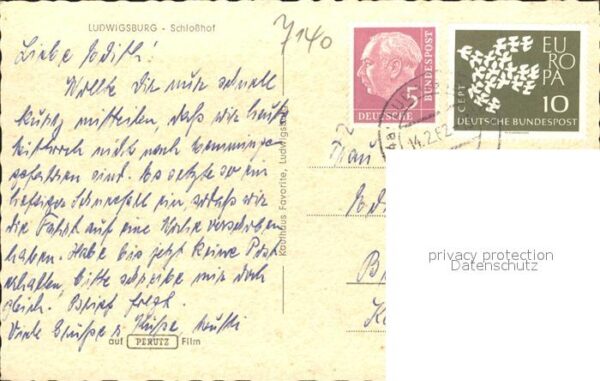 LUDWIGSBURG - Schloßhof
7140
Liebe Edith!
Wollte Dir nur schnell
kurz mitteilen, daß wir heute
Mittwoch nicht nach Memmingen
gefahren sind. Es setzte so ein
heftiger Schneefall ein, sodaß wir
die Fahrt auf eine Woche verschoben
haben. Habe bis jetzt keine Post
erhalten, bitte schreibe mir doch
gleich. Brief folgt.
Viele Grüße u. Küsse,
auf PERUTZ Film
Kaufhaus Favorite, Ludwigsburg
5
DEUTSCHE
BUNDESPOST
EUROPA
CEPT
10
DEUTSCHE BUNDESPOST
14.2.62
Frau
privacy protection
Datenschutz